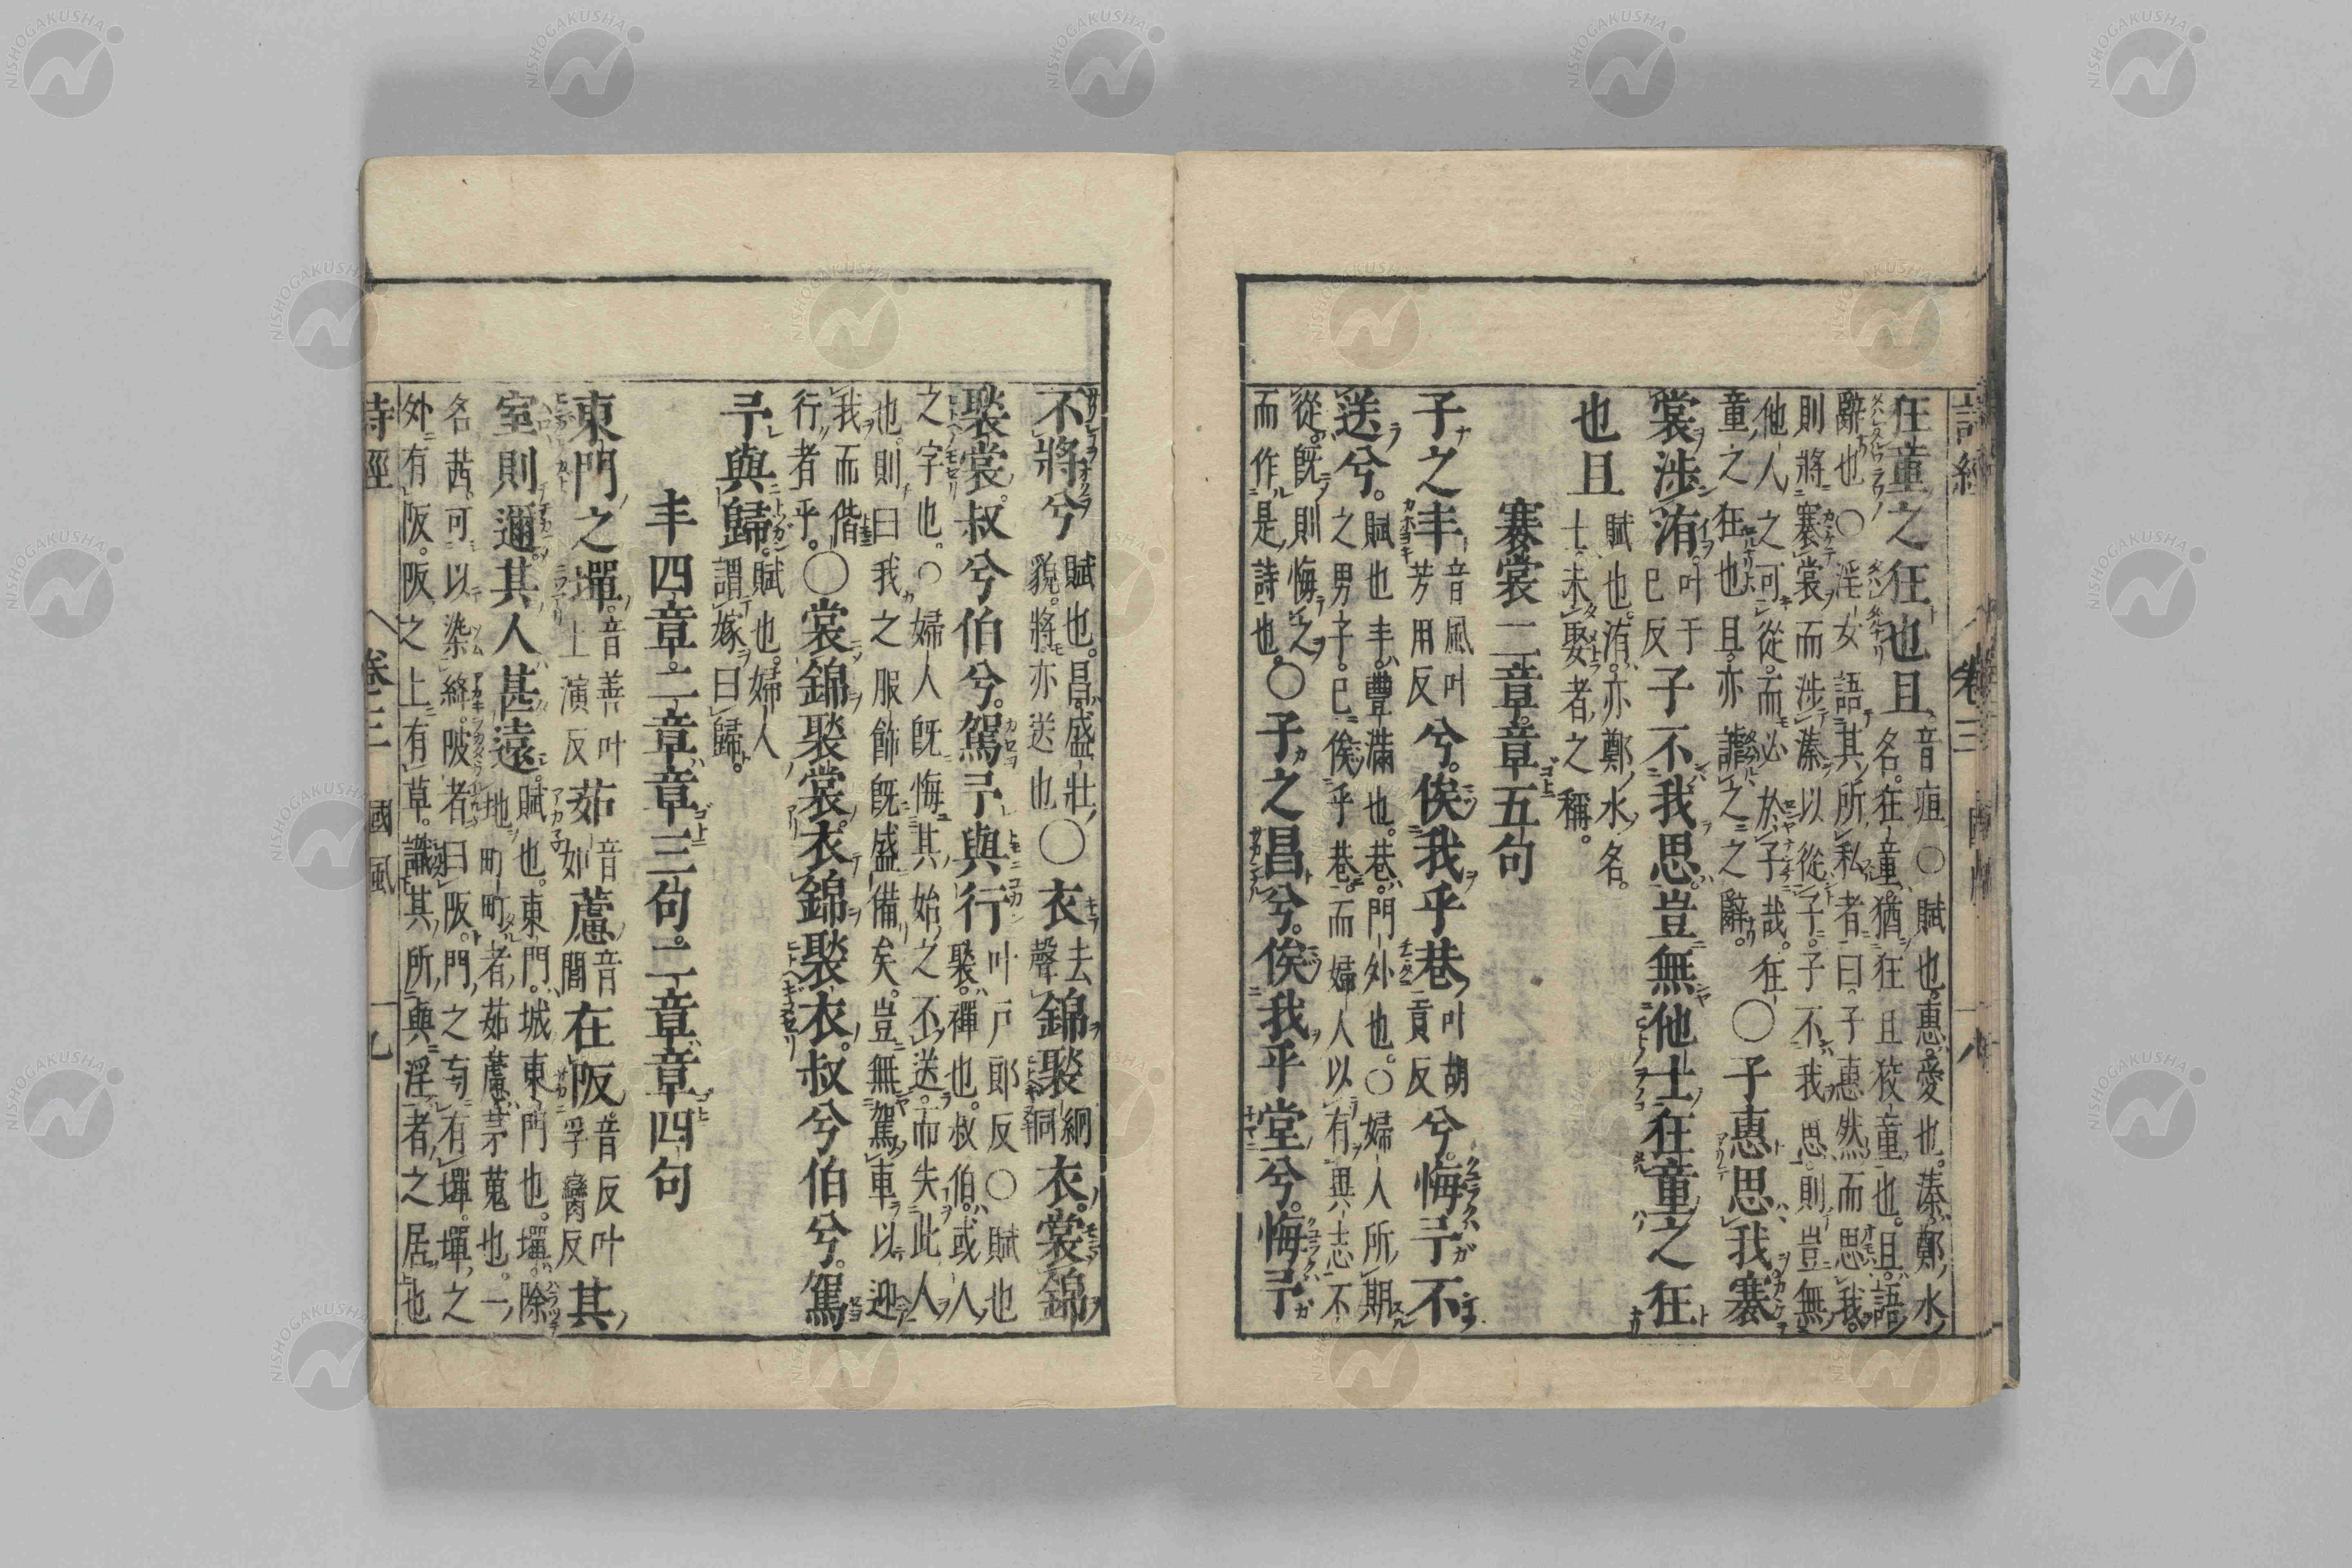 狂童之狂也且。音疽○賦也。惠愛也。溱鄭水
名。狂童猶狂且狡童也。且語
辭也○淫女語其所私者曰。子惠然而思我。
則將褰裳而涉溱以從子。子不我思。則豈無
他人之可從。而必於子哉。狂
童之狂也且。亦謔之之辭。○子惠思我褰
裳涉洧。叶于已反子不我思。豈無他士狂童之狂
也且賦也。洧亦鄭水名。士未娶者之稱。
褰裳二章章五句
子之丰音風叶芳用反兮。俟我乎巷叶胡貢反兮。悔予不
送兮。賦也丰豐滿也。巷門外也。○婦人所期
之男子。已俟乎巷。而婦人以有異志不
從。旣則悔之。
而作是詩也。○子之昌兮。俟我乎堂兮。悔予
不將兮賦也。昌盛壯貌。將亦送也○衣去聲錦褧絅衣。裳錦
褧裳。叔兮伯兮。駕予與行叶戶郎反○賦也褧。襌也。叔伯。或人
之字也。○婦人旣悔其始之不送。而失此人
也。則曰我之服飾旣盛備矣。豈無駕車以迎
我而偕
行者乎。○裳錦褧裳。衣錦褧衣。叔兮伯兮。駕
予與歸。賦也。婦人謂嫁曰歸。
丰四章。二章章三句。二章章四句
東門之墠。音善叶上演反茹音如藘音閭在阪。音反叶孚臠反其
室則邇其人甚遠。賦也。東門。城東門也。墠。除
地町町者。茹藘茅蒐也。一
名茜。可以染絳。陂者曰阪。門之旁有墠。墠之
外有阪。阪之上有草。識其所與淫者之居也
詩經 卷三 國風 十九